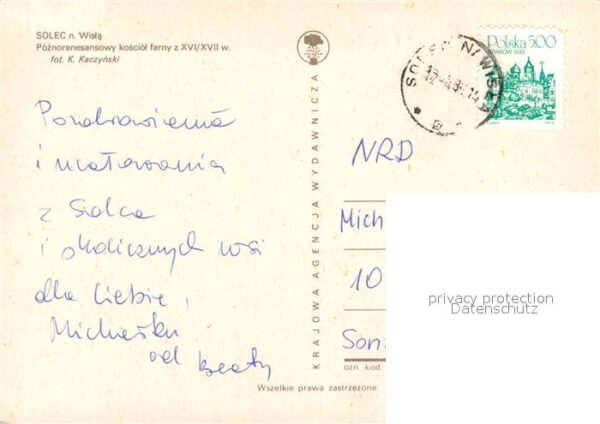 SOLEC n. Wisłą
Późnorenesansowy kościół farny z XVI/XVII w.
fot. K. Kaczyński
Pozdrowienia
i
z Solca
i okolicznych wsi
dla Ciebie,
od Beaty
KRAJOWA AGENCJA WYDAWNICZA
Polska 500
SOLEC N/WISŁĄ
NRD
Mich
10
Son
ozn. kod
Wszelkie prawa zastrzeżone
privacy protection
Datenschutz